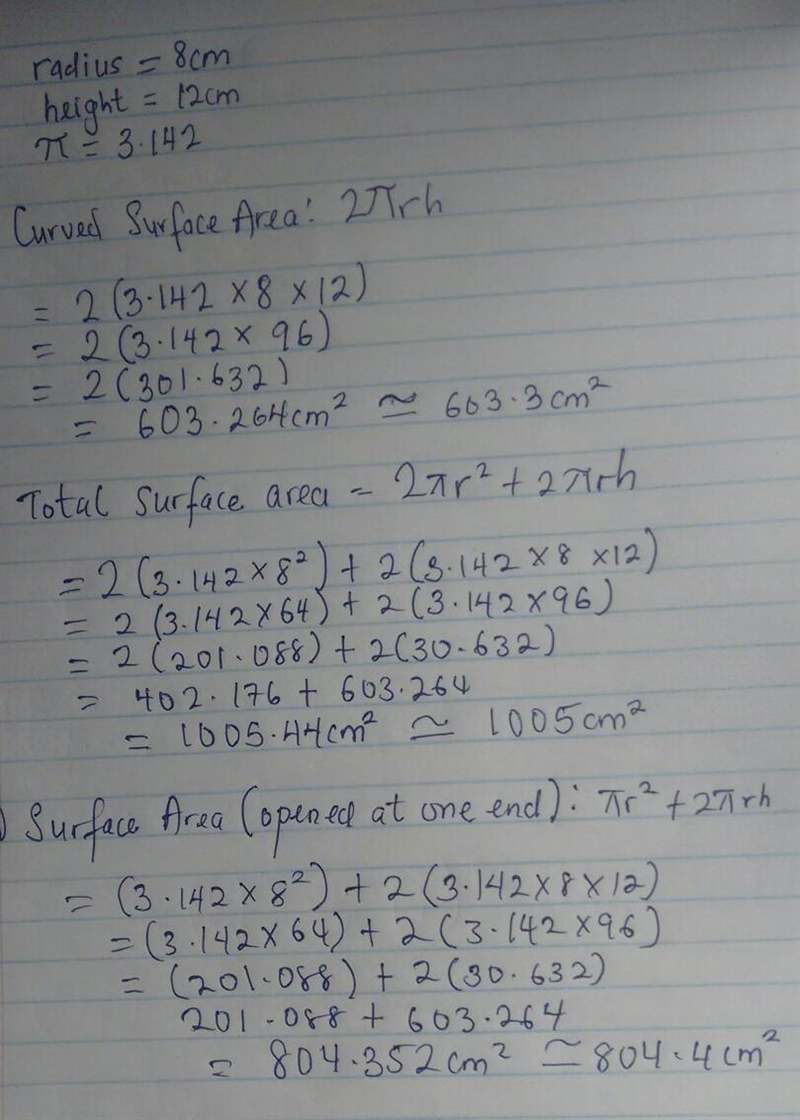 radius = 8cm
height = 12cm
π = 3.142
Curved Surface Area: 2πrh
= 2(3.142 × 8 × 12)
= 2(3.142 × 96)
= 2(301.632)
= 603.264cm² ≃ 603.3cm²
Total surface area = 2πr² + 2πrh
= 2(3.142 × 8²) + 2(3.142 × 8 × 12)
= 2(3.142 × 64) + 2(3.142 × 96)
= 2(201.088) + 2(30.632)
= 402.176 + 603.264
= 1005.44cm² ≃ 1005cm²
) Surface Area (opened at one end): πr² + 2πrh
= (3.142 × 8²) + 2(3.142 × 8 × 12)
= (3.142 × 64) + 2(3.142 × 96)
= (201.088) + 2(30.632)
201.088 + 603.264
= 804.352cm² ≃ 804.4cm²